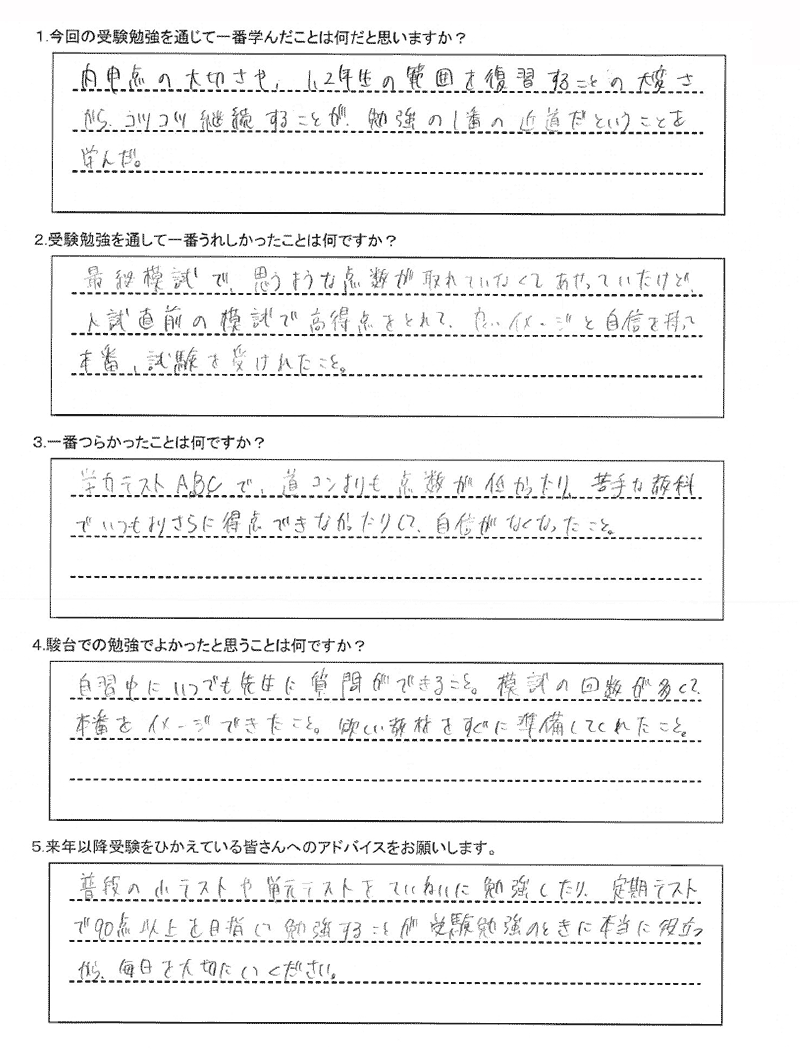 1.今回の受験勉強を通じて一番学んだことは何だと思いますか？
内申点の大切さや、1,2年生の範囲を復習することの大変さ
から、コツコツ継続することが、勉強の1番の近道だということを
学んだ。
2.受験勉強を通して一番うれしかったことは何ですか？
最終模試で、思うような点数が取れていなくてあせっていたけど、
入試直前の模試で高得点をとれて、良いイメージと自信を持って
本番、試験を受けれたこと。
3.一番つらかったことは何ですか？
学力テストABCで、道コンよりも点数が低かったり、苦手な教科
でいつもよりさらに得点できなかったりして、自信がなくなったこと。
4.駿台での勉強でよかったと思うことは何ですか？
自習中にいつでも先生に質問ができること。模試の回数が多くて、
本番をイメージできたこと。欲しい教材をすぐに準備してくれたこと。
5.来年以降受験をひかえている皆さんへのアドバイスをお願いします。
普段の小テストや単元テストをていねいに勉強したり、定期テスト
で90点以上を目指して勉強することが受験勉強のときに本当に役立つ
から、毎日を大切にしてください。